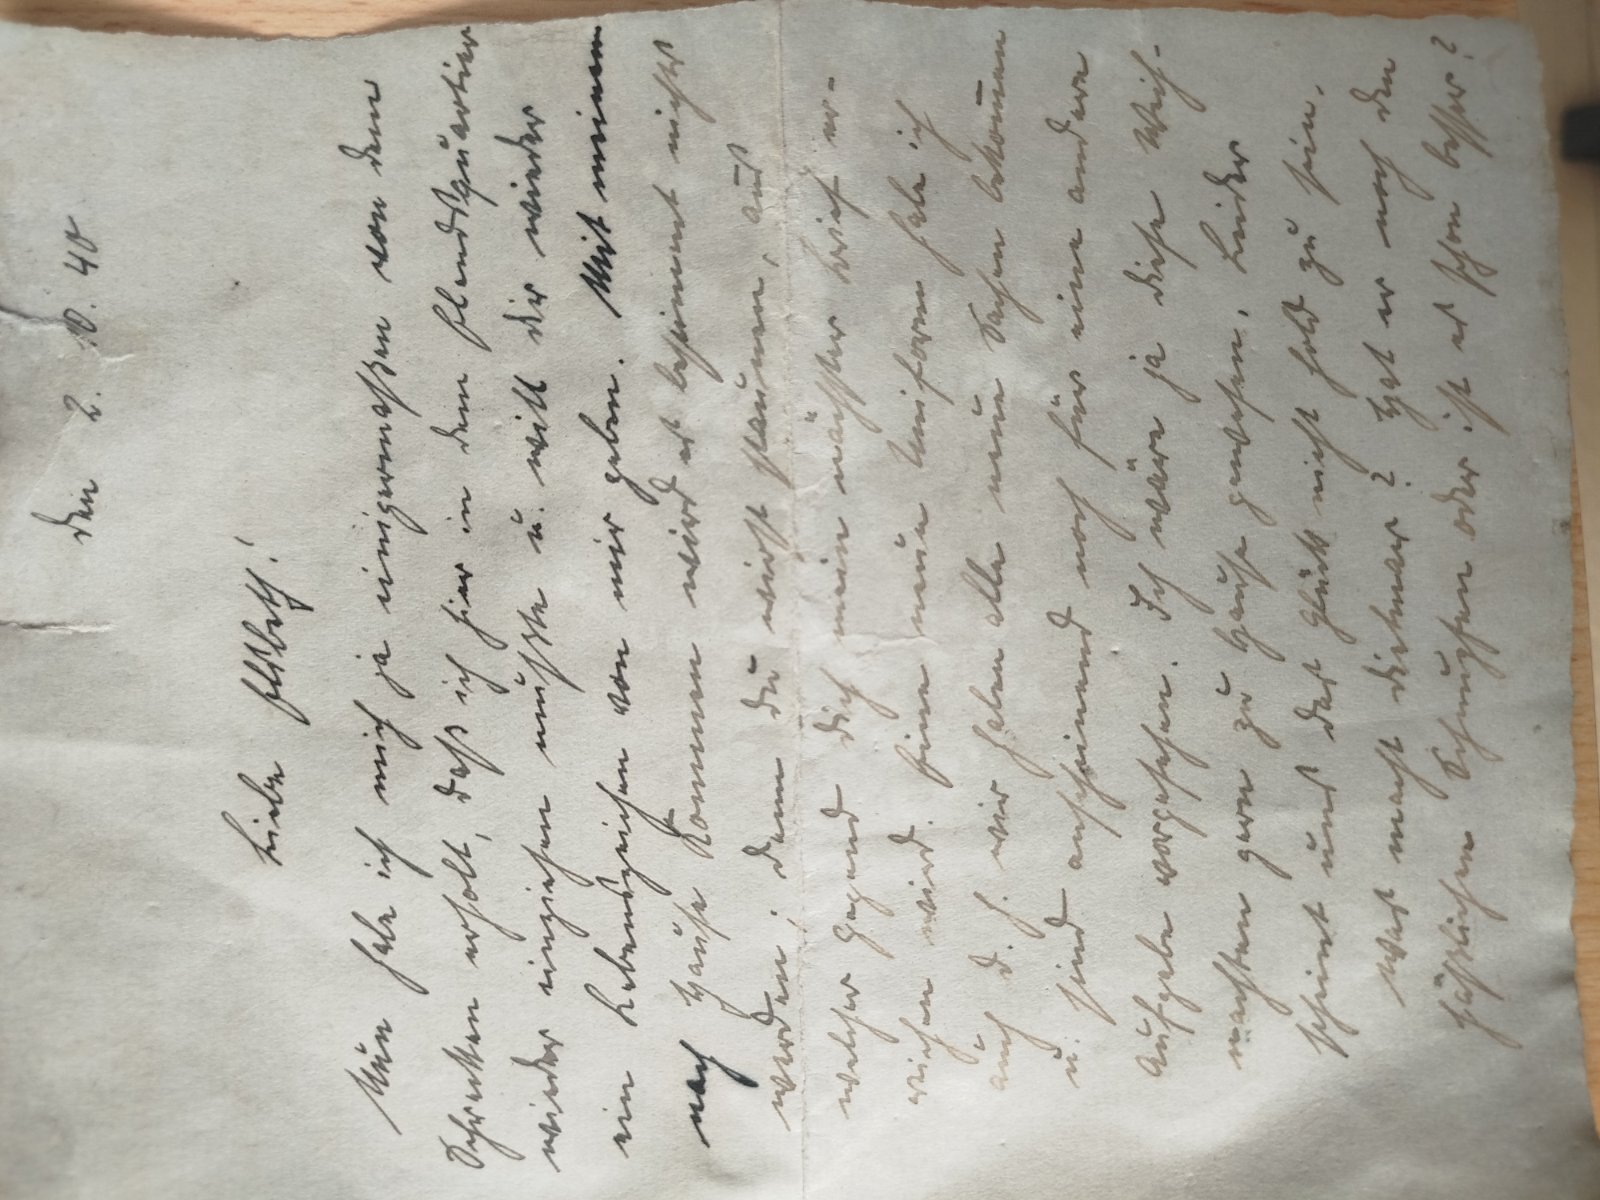 den 2. 10. 40
Liebe Elsbeth!
Nun habe ich mich ja einigermaßen von dem
Schrecken erholt, daß ich hier in dem Elendsquartier
wieder einziehen mußte u. will dir wieder
ein Lebenszeichen von mir geben. Mit meinem
nach Hause Kommen wird es bestimmt nichts
werden; denn du wirst staunen, aus
welcher Gegend dich mein nächster Brief er-
reichen wird. Eine neue Uniform habe ich
auch d. h. wir haben alle neue Sachen bekommen
u. sind anscheinend noch für eine andere
Aufgabe vorgesehen. Ich wäre ja diese Weih-
nachten gern zu Hause gewesen. Leider
scheint uns das Glück nicht hold zu sein.
Was macht Dietmar? Hat er noch den
häßlichen Schnupfen oder ist es schon besser?